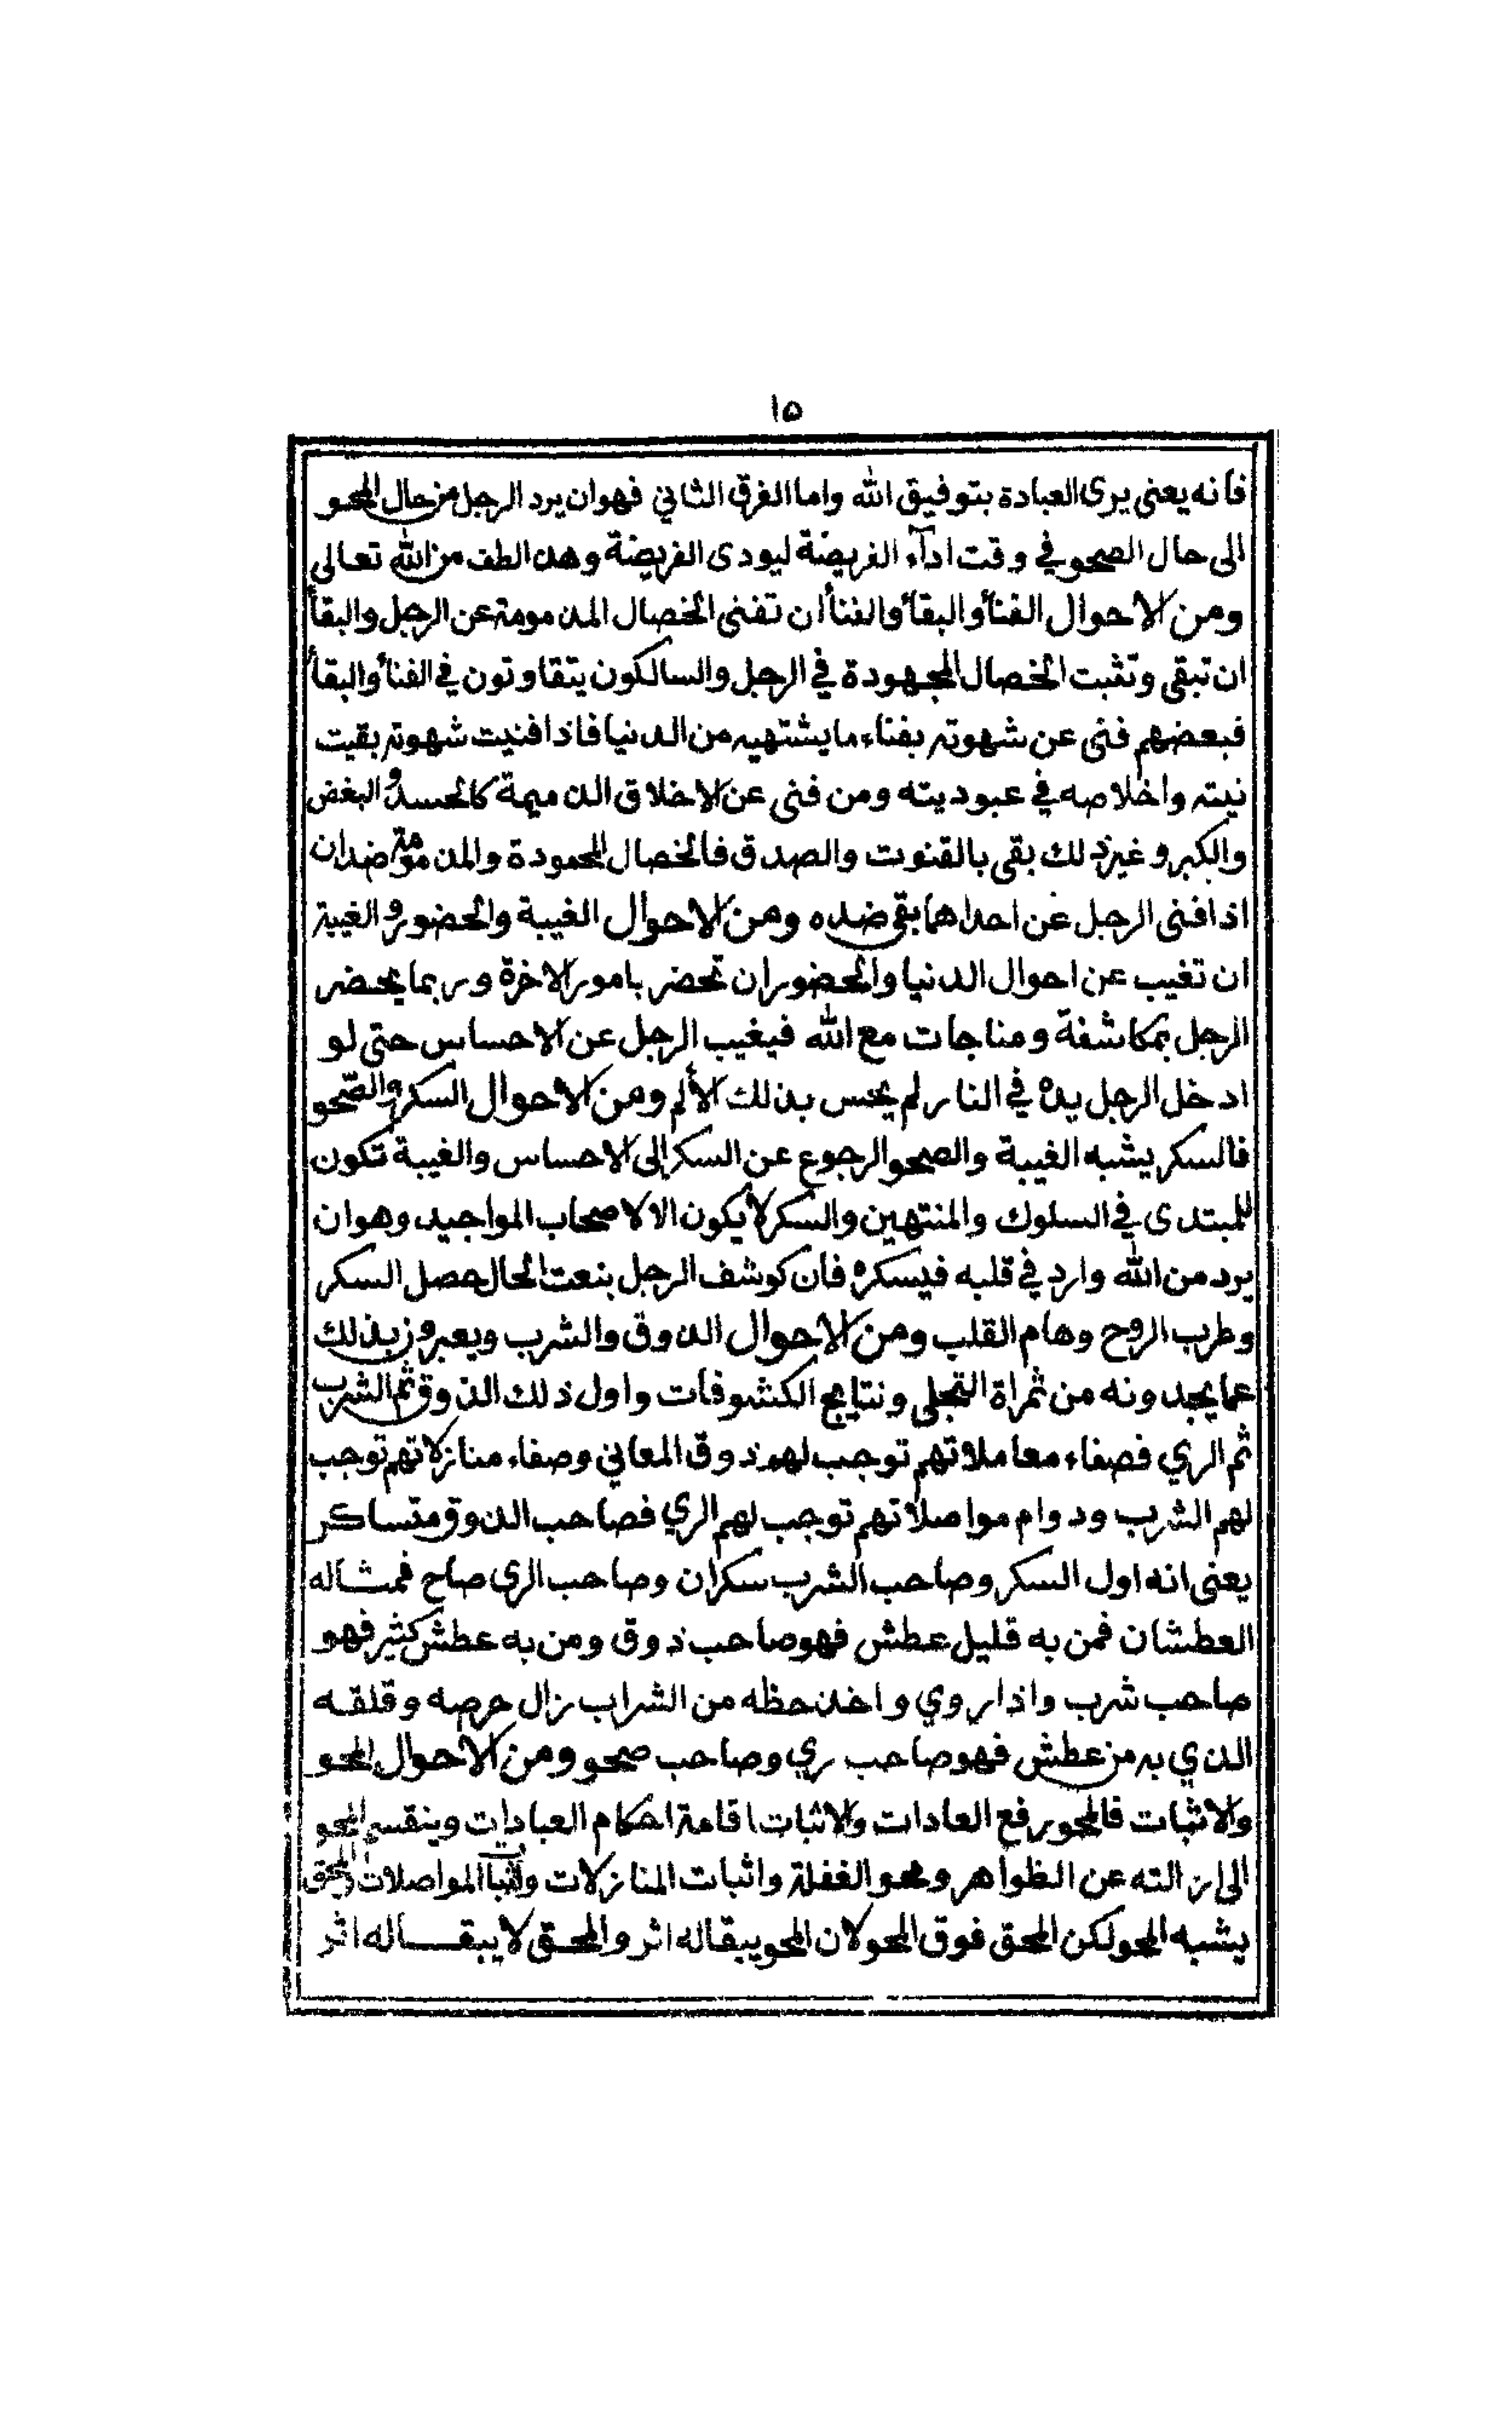 ١٥
فأنه يعنى يرى العبادة بتوفيق الله واما الفرق الثاني فهوان يرد الرجل من حال المحو
الى حال الصحو في وقت ادآء الفريضة ليودى الفريضة وهذا لطف من الله تعالى
ومن الاحوال الفنأ والبقأ والفنأ ان تفنى الخصال المذمومة عن الرجل والبقأ
ان تبقى وتثبت الخصال المجهودة في الرجل والسالكون يتقاوتون في الفنأ والبقأ
فبعضهم فنى عن شهوته بفناء ما يشتهيه من الدنيا فاذا فنيت شهوته بقيت
نيته واخلاصه في عبوديته ومن فنى عن الاخلاق الذميمة كالحسد والبغض
والكبر وغير ذلك بقى بالقنوت والصدق فالخصال المحمودة والمذمومة ضدان
اذا فنى الرجل عن احداهما بقى ضده ومن الاحوال الغيبة والحضور والغيبة
ان تغيب عن احوال الدنيا والحضور ان تحضر بامور الاخرة وربما يحضر
الرجل بمكاشفة ومناجات مع الله فيغيب الرجل عن الاحساس حتى لو
ادخل الرجل يده في النار لم يحس بذلك الألم ومن الاحوال السكر والصحو
فالسكر يشبه الغيبة والصحو الرجوع عن السكر إلى الاحساس والغيبة تكون
للمبتدى في السلوك والمنتهين والسكر لا يكون الا لاصحاب المواجيد وهوان
يرد من الله وارد في قلبه فيسكره فأن كوشف الرجل بنعت الحال حصل السكر
وطرب الروح وهام القلب ومن الاحوال الذوق والشرب ويعبرون بذلك
عما يجدونه من ثمراة التجلى ونتايج الكشوفات واول ذلك الذوق ثم الشرب
ثم الري فصفاء معاملاتهم توجب لهم ذوق المعاني وصفاء منازلاتهم توجب
لهم الشرب ودوام مواصلاتهم توجب لهم الري فصاحب الذوق متساكر
يعنى انه اول السكر وصاحب الشرب سكران وصاحب الري صاح فمثاله
العطشان فمن به قليل عطش فهو صاحب ذوق ومن به عطش كثير فهو
صاحب شرب واذا روي واخذ حظه من الشراب زال حرصه وقلقه
الذي به من عطش فهو صاحب ري وصاحب صحو ومن الاحوال المحو
والاثبات فالمحو رفع العادات والاثبات اقامة احكام العبادات وينقسم المحو
الى ازالته عن الظواهر ومحو الغفلة واثبات المنازلات واثبات المواصلات والمحق
يشبه المحو لكن المحق فوق المحو لان المحو يبقا له اثر والمحق لا يبقا له اثر